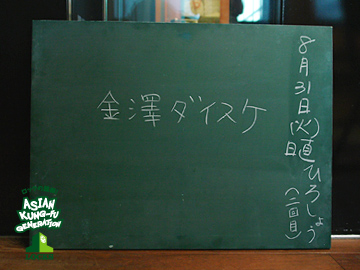 8月31日(火)日直ひろしょう(二回目)
金澤ダイスケ
ASIAN
KUNG-FU
GENERATION